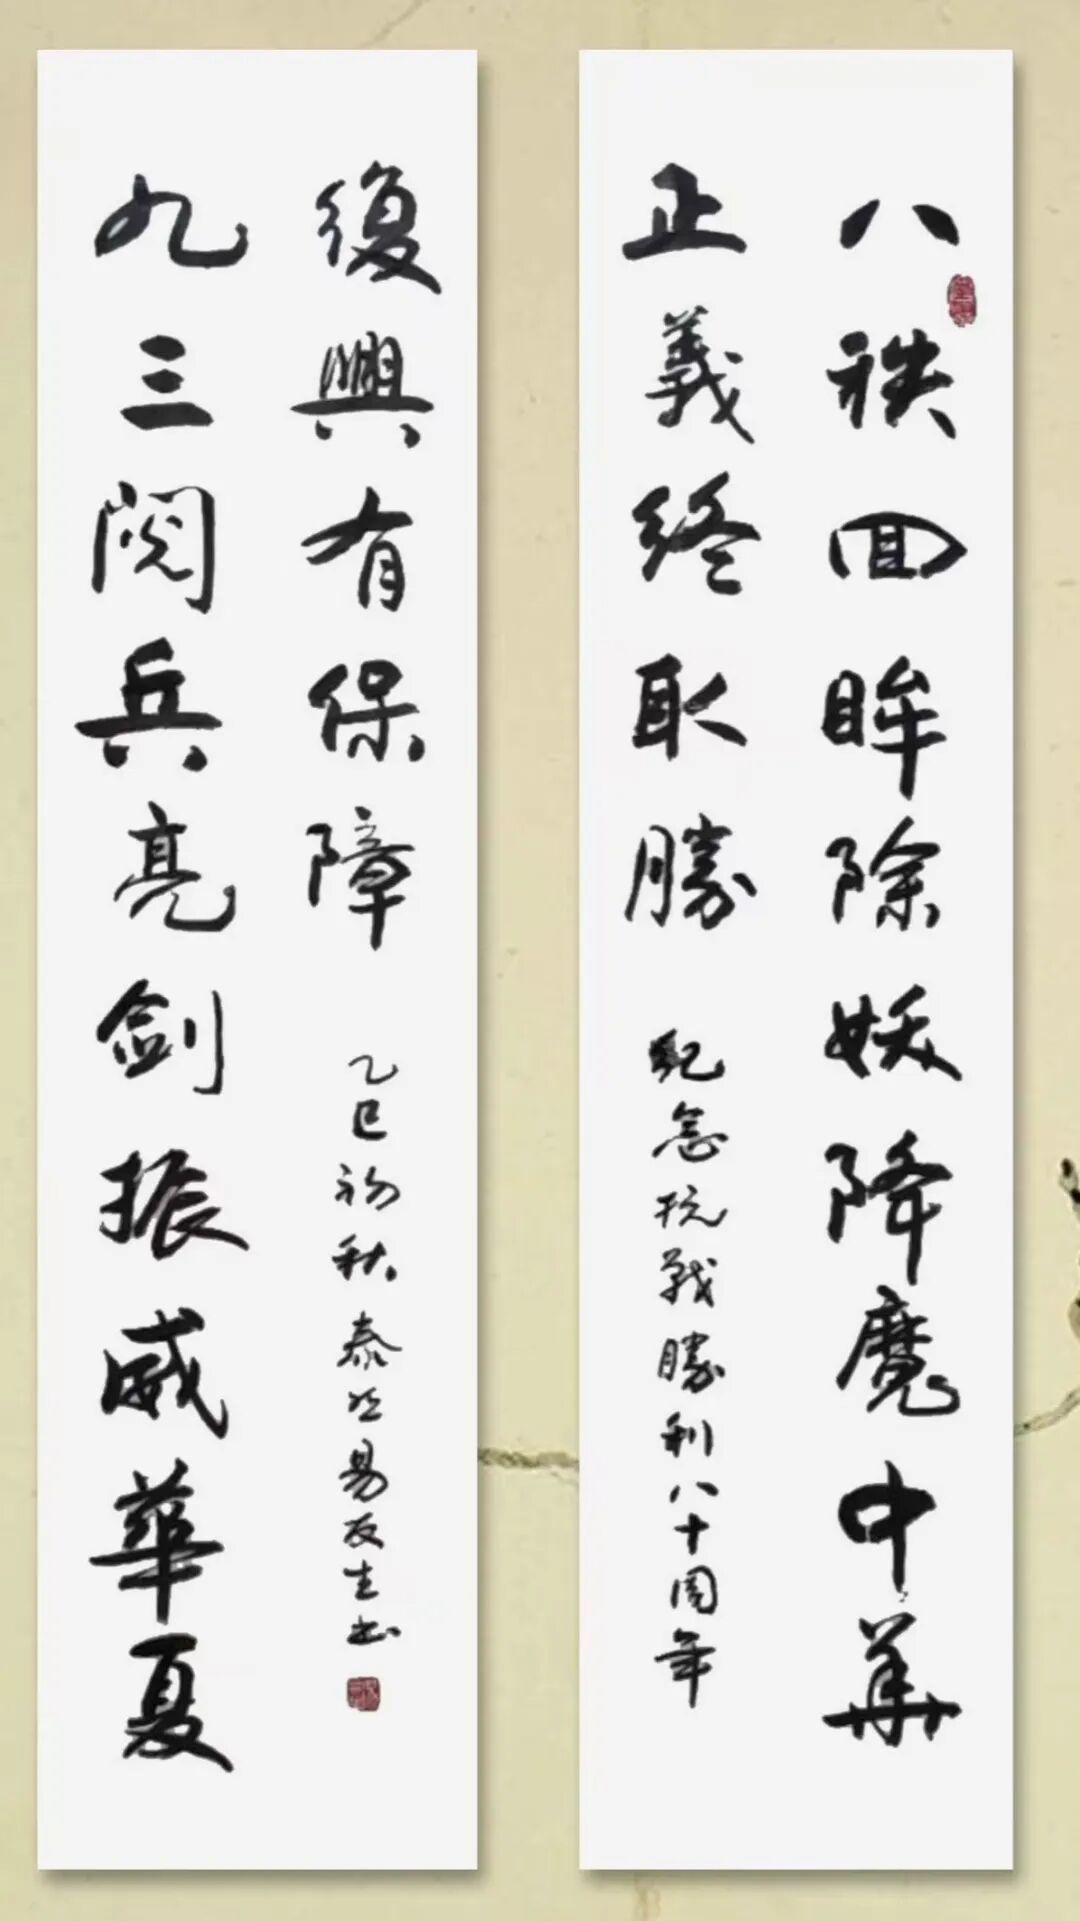 八秩回眸除妖降魔中華
正義終取勝
紀念抗戰勝利八十周年
九三閱兵亮劍振威華夏
復興有保障
乙巳初秋泰興易友生書